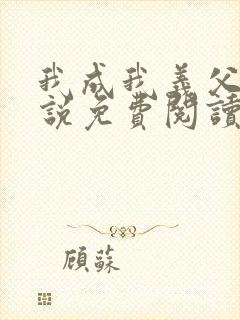 我成我義父
說免費閱讀
顧蘇